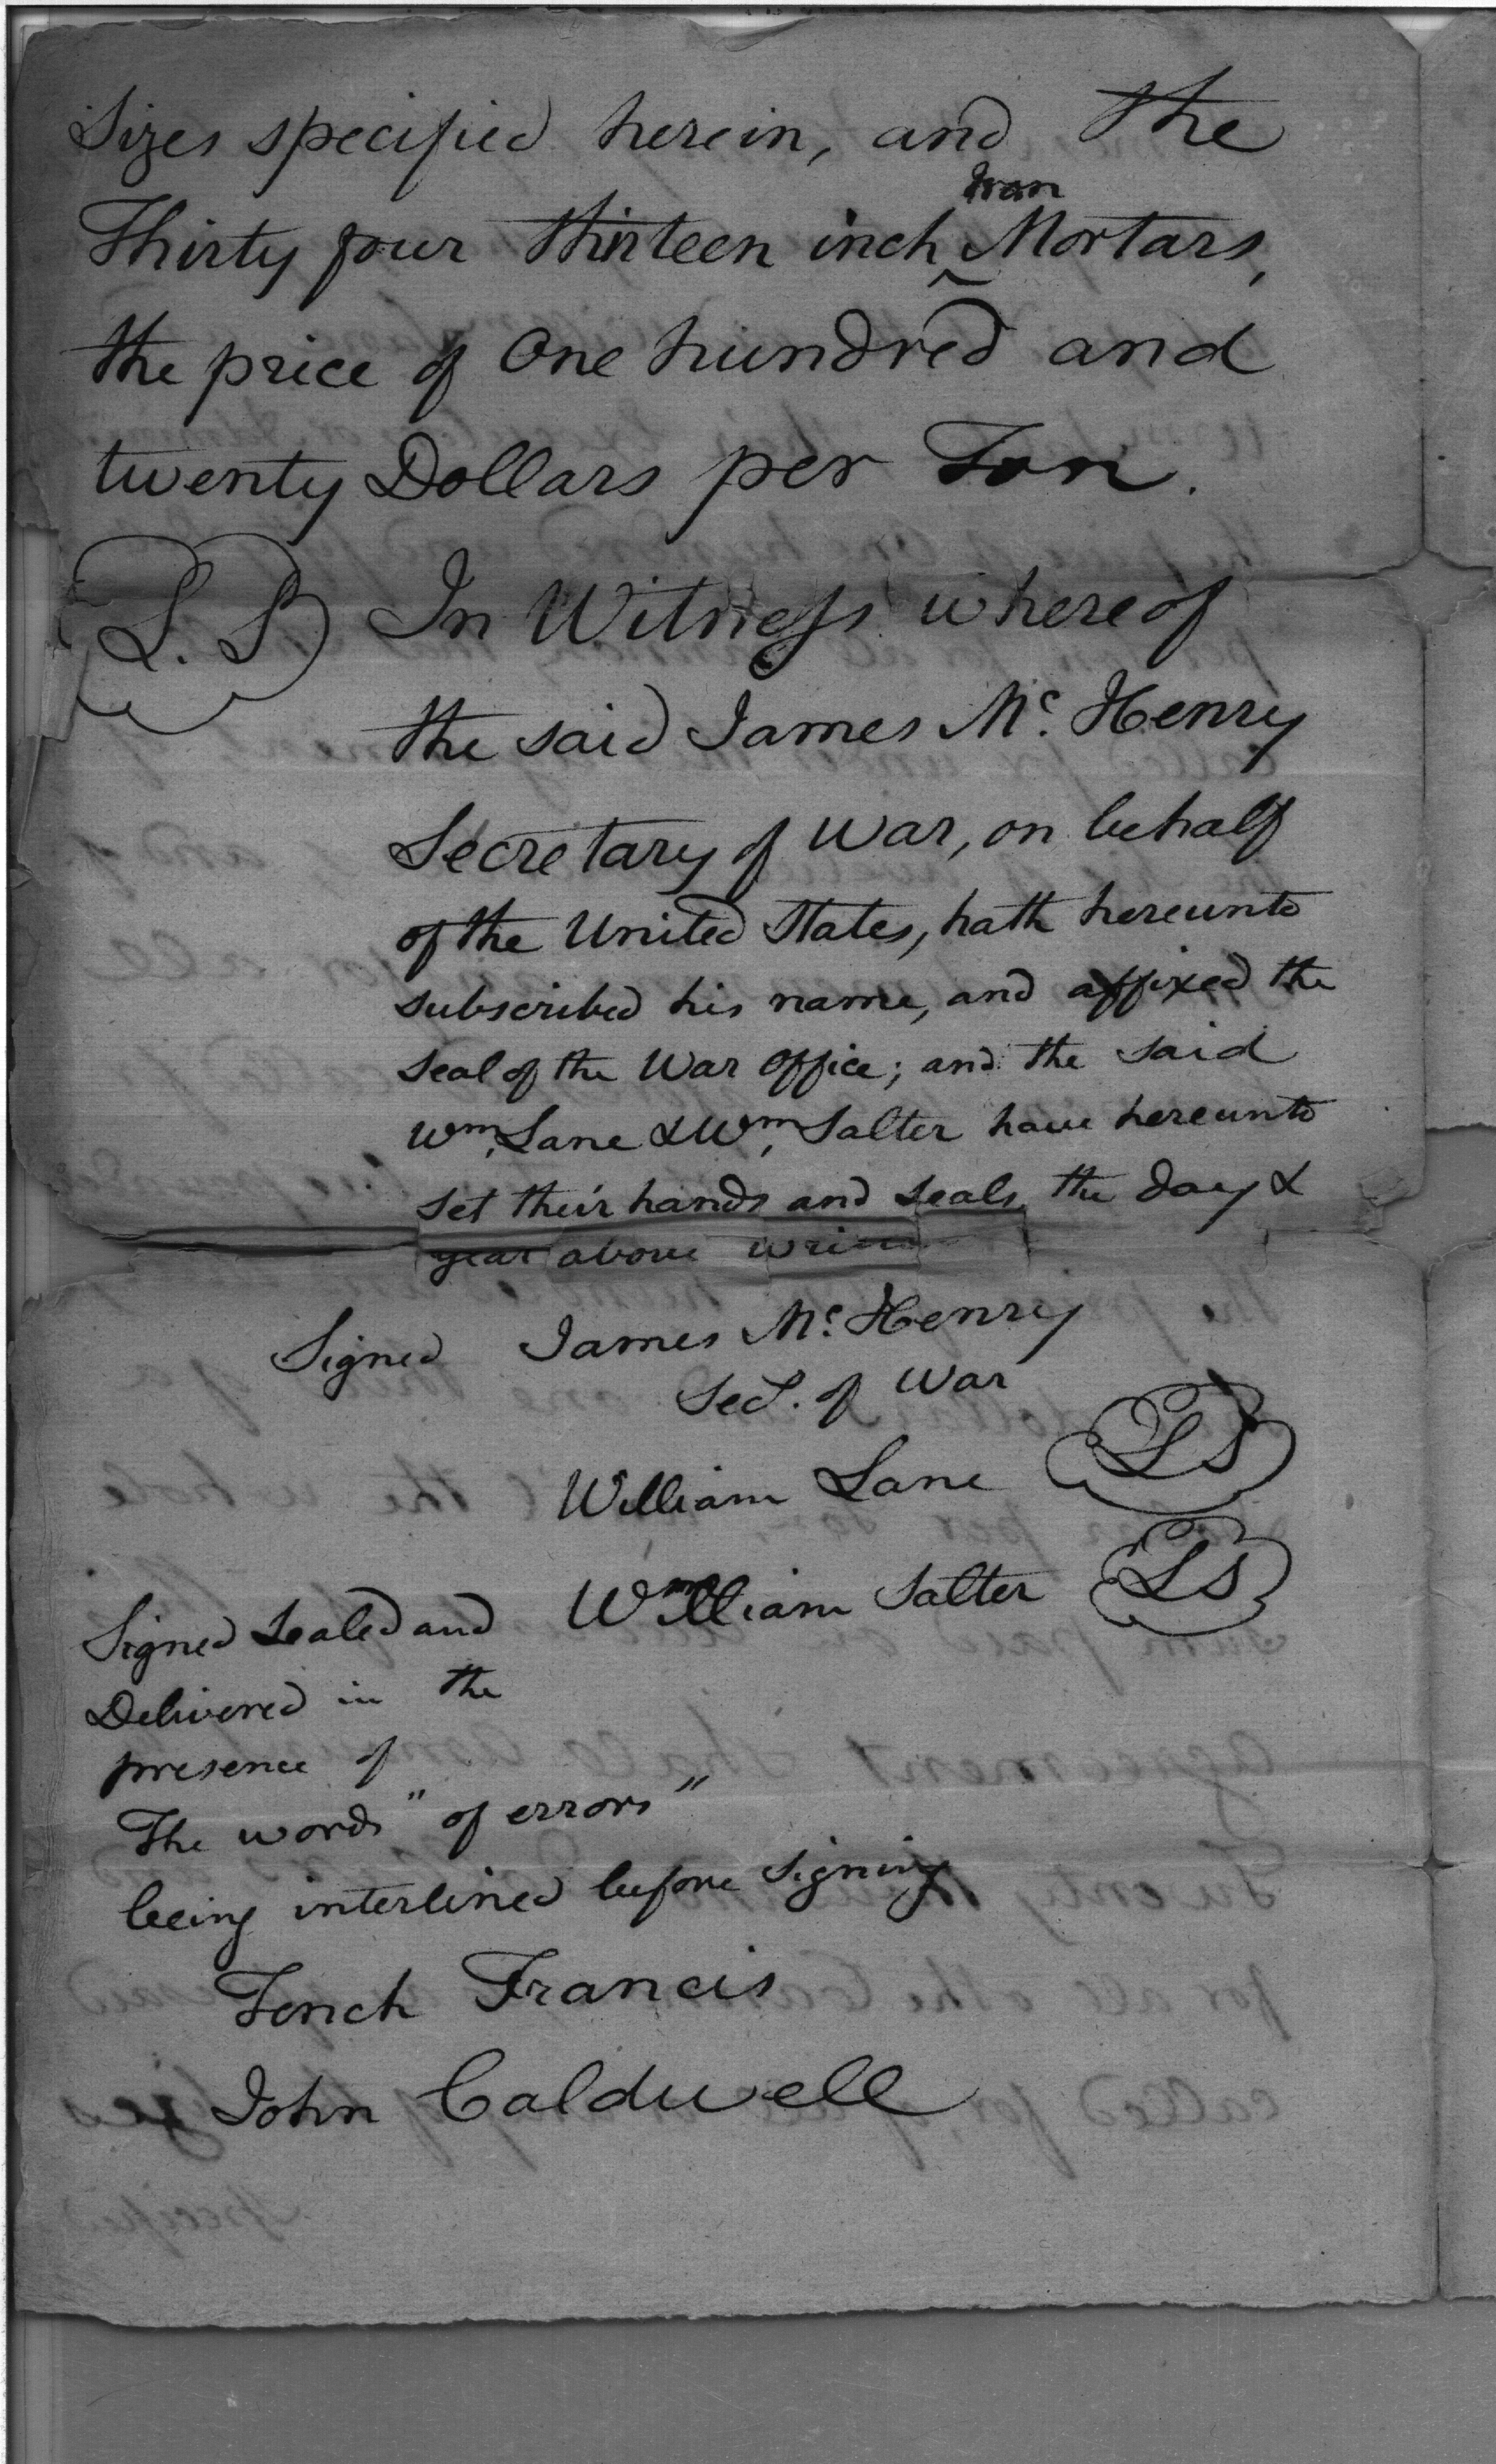 Sizes specified herein, and the
Iron
Thirty four thirteen inch ^ Mortars,
the price of One hundred and
twenty Dollars per Ton.
L. S In Witness whereof
the said James Mc. Henry
Secretary of War, on behalf
of the United States, hath hereunto
subscribed his name, and affixed the
seal of the War Office; and the said
Wm, Lane & Wm, Salter have hereunto
set their hands and seals, the day &
year above
Signed James Mc. Henry
Sec. of War
William Lane LS
William Salter LS
Signed Sealed and
Delivered in the
presence of
The words "of errors"
being interlined before signing
Tench Francis
John Caldwell